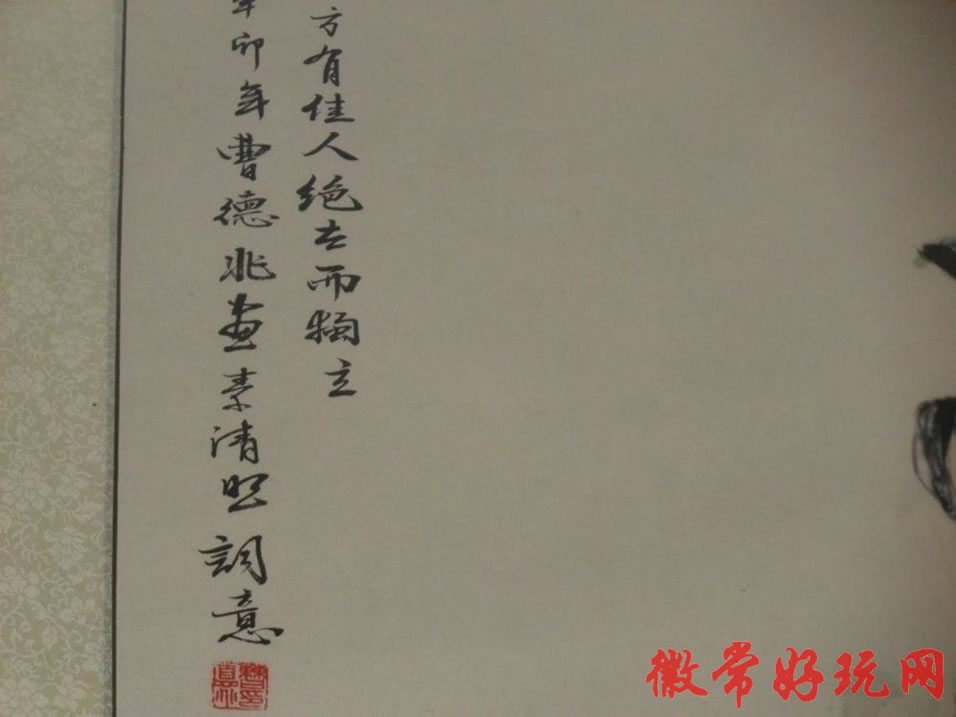 方有佳人绝世而獨立
辛卯年曹德兆畫李清照詞意
徽常好玩网